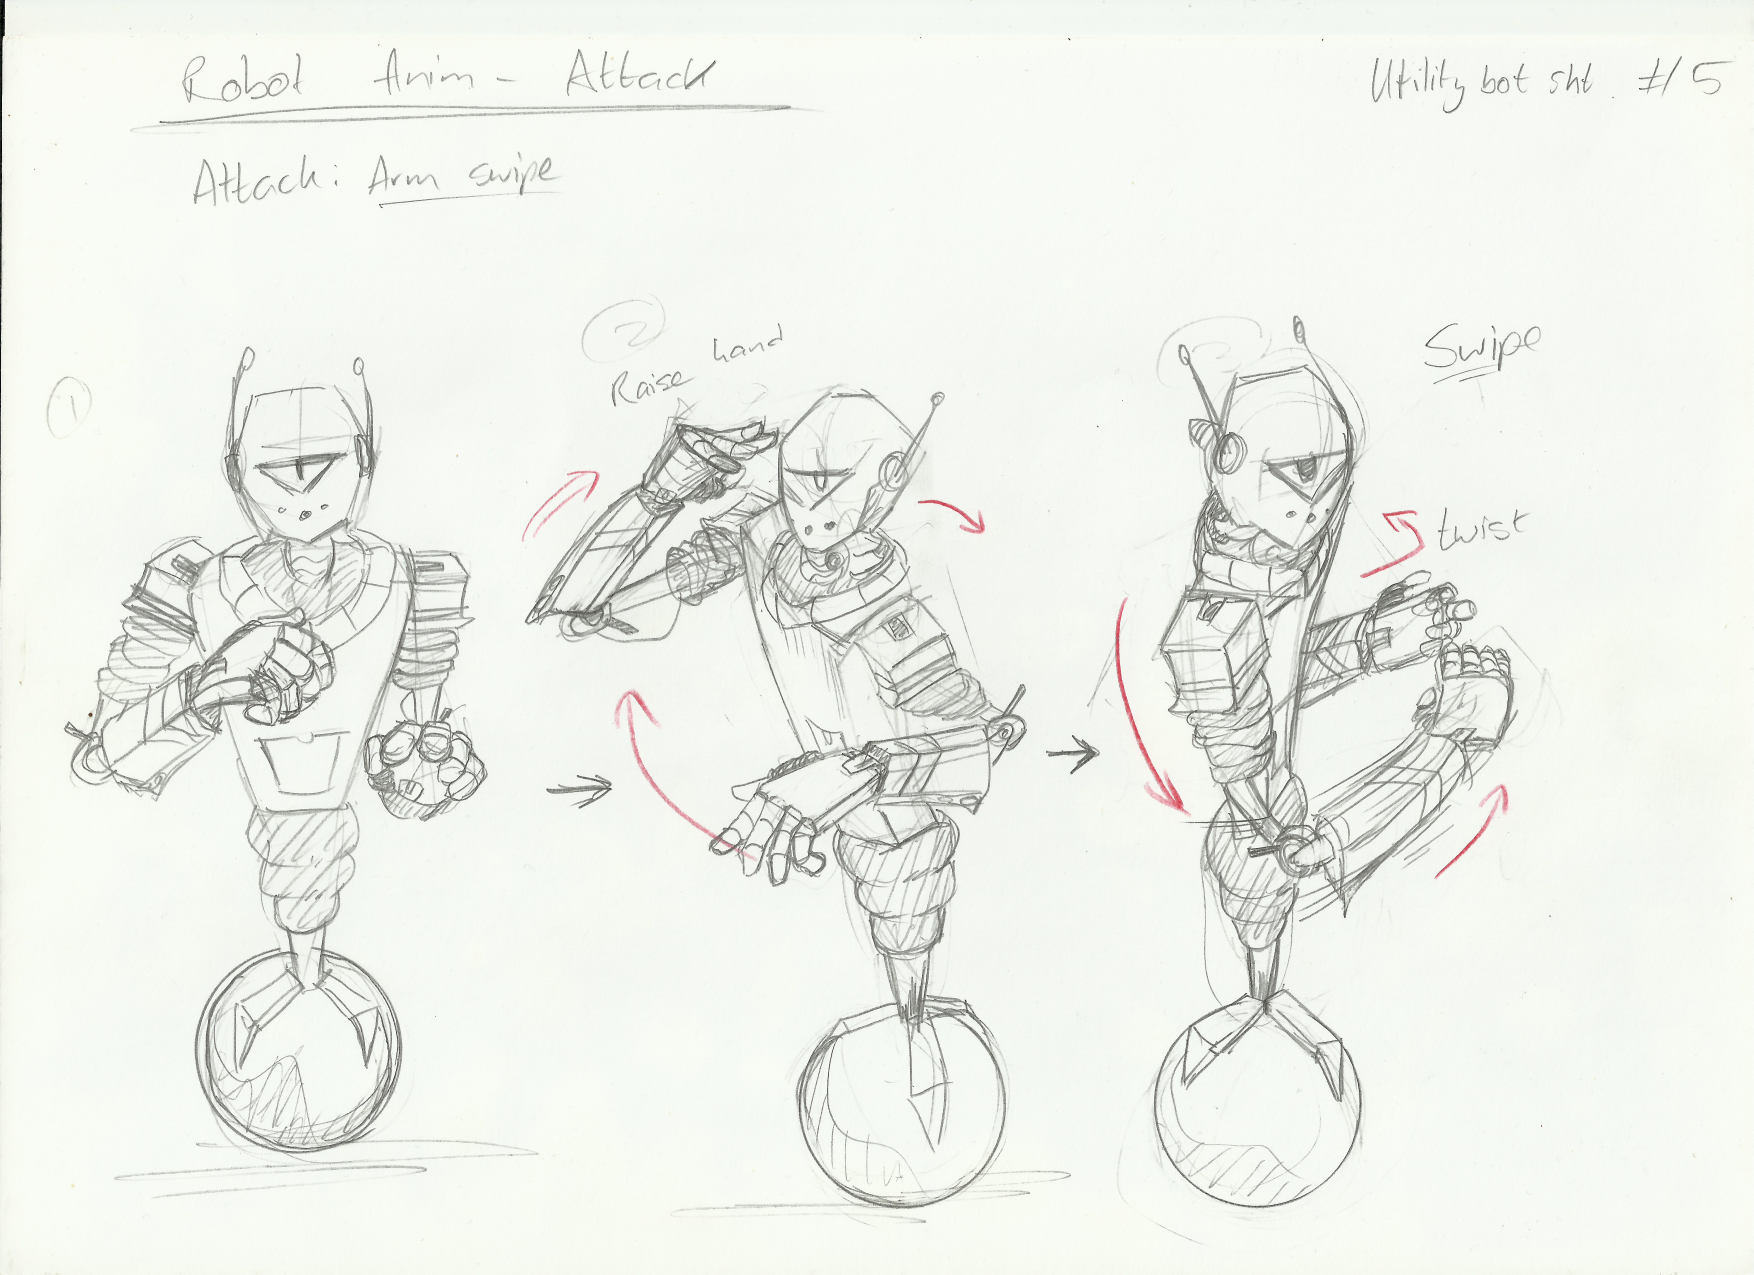 Robot Anim - Attack
Utility bot sht. #15
Attack: Arm swipe
1
2
Raise hand
Swipe
twist